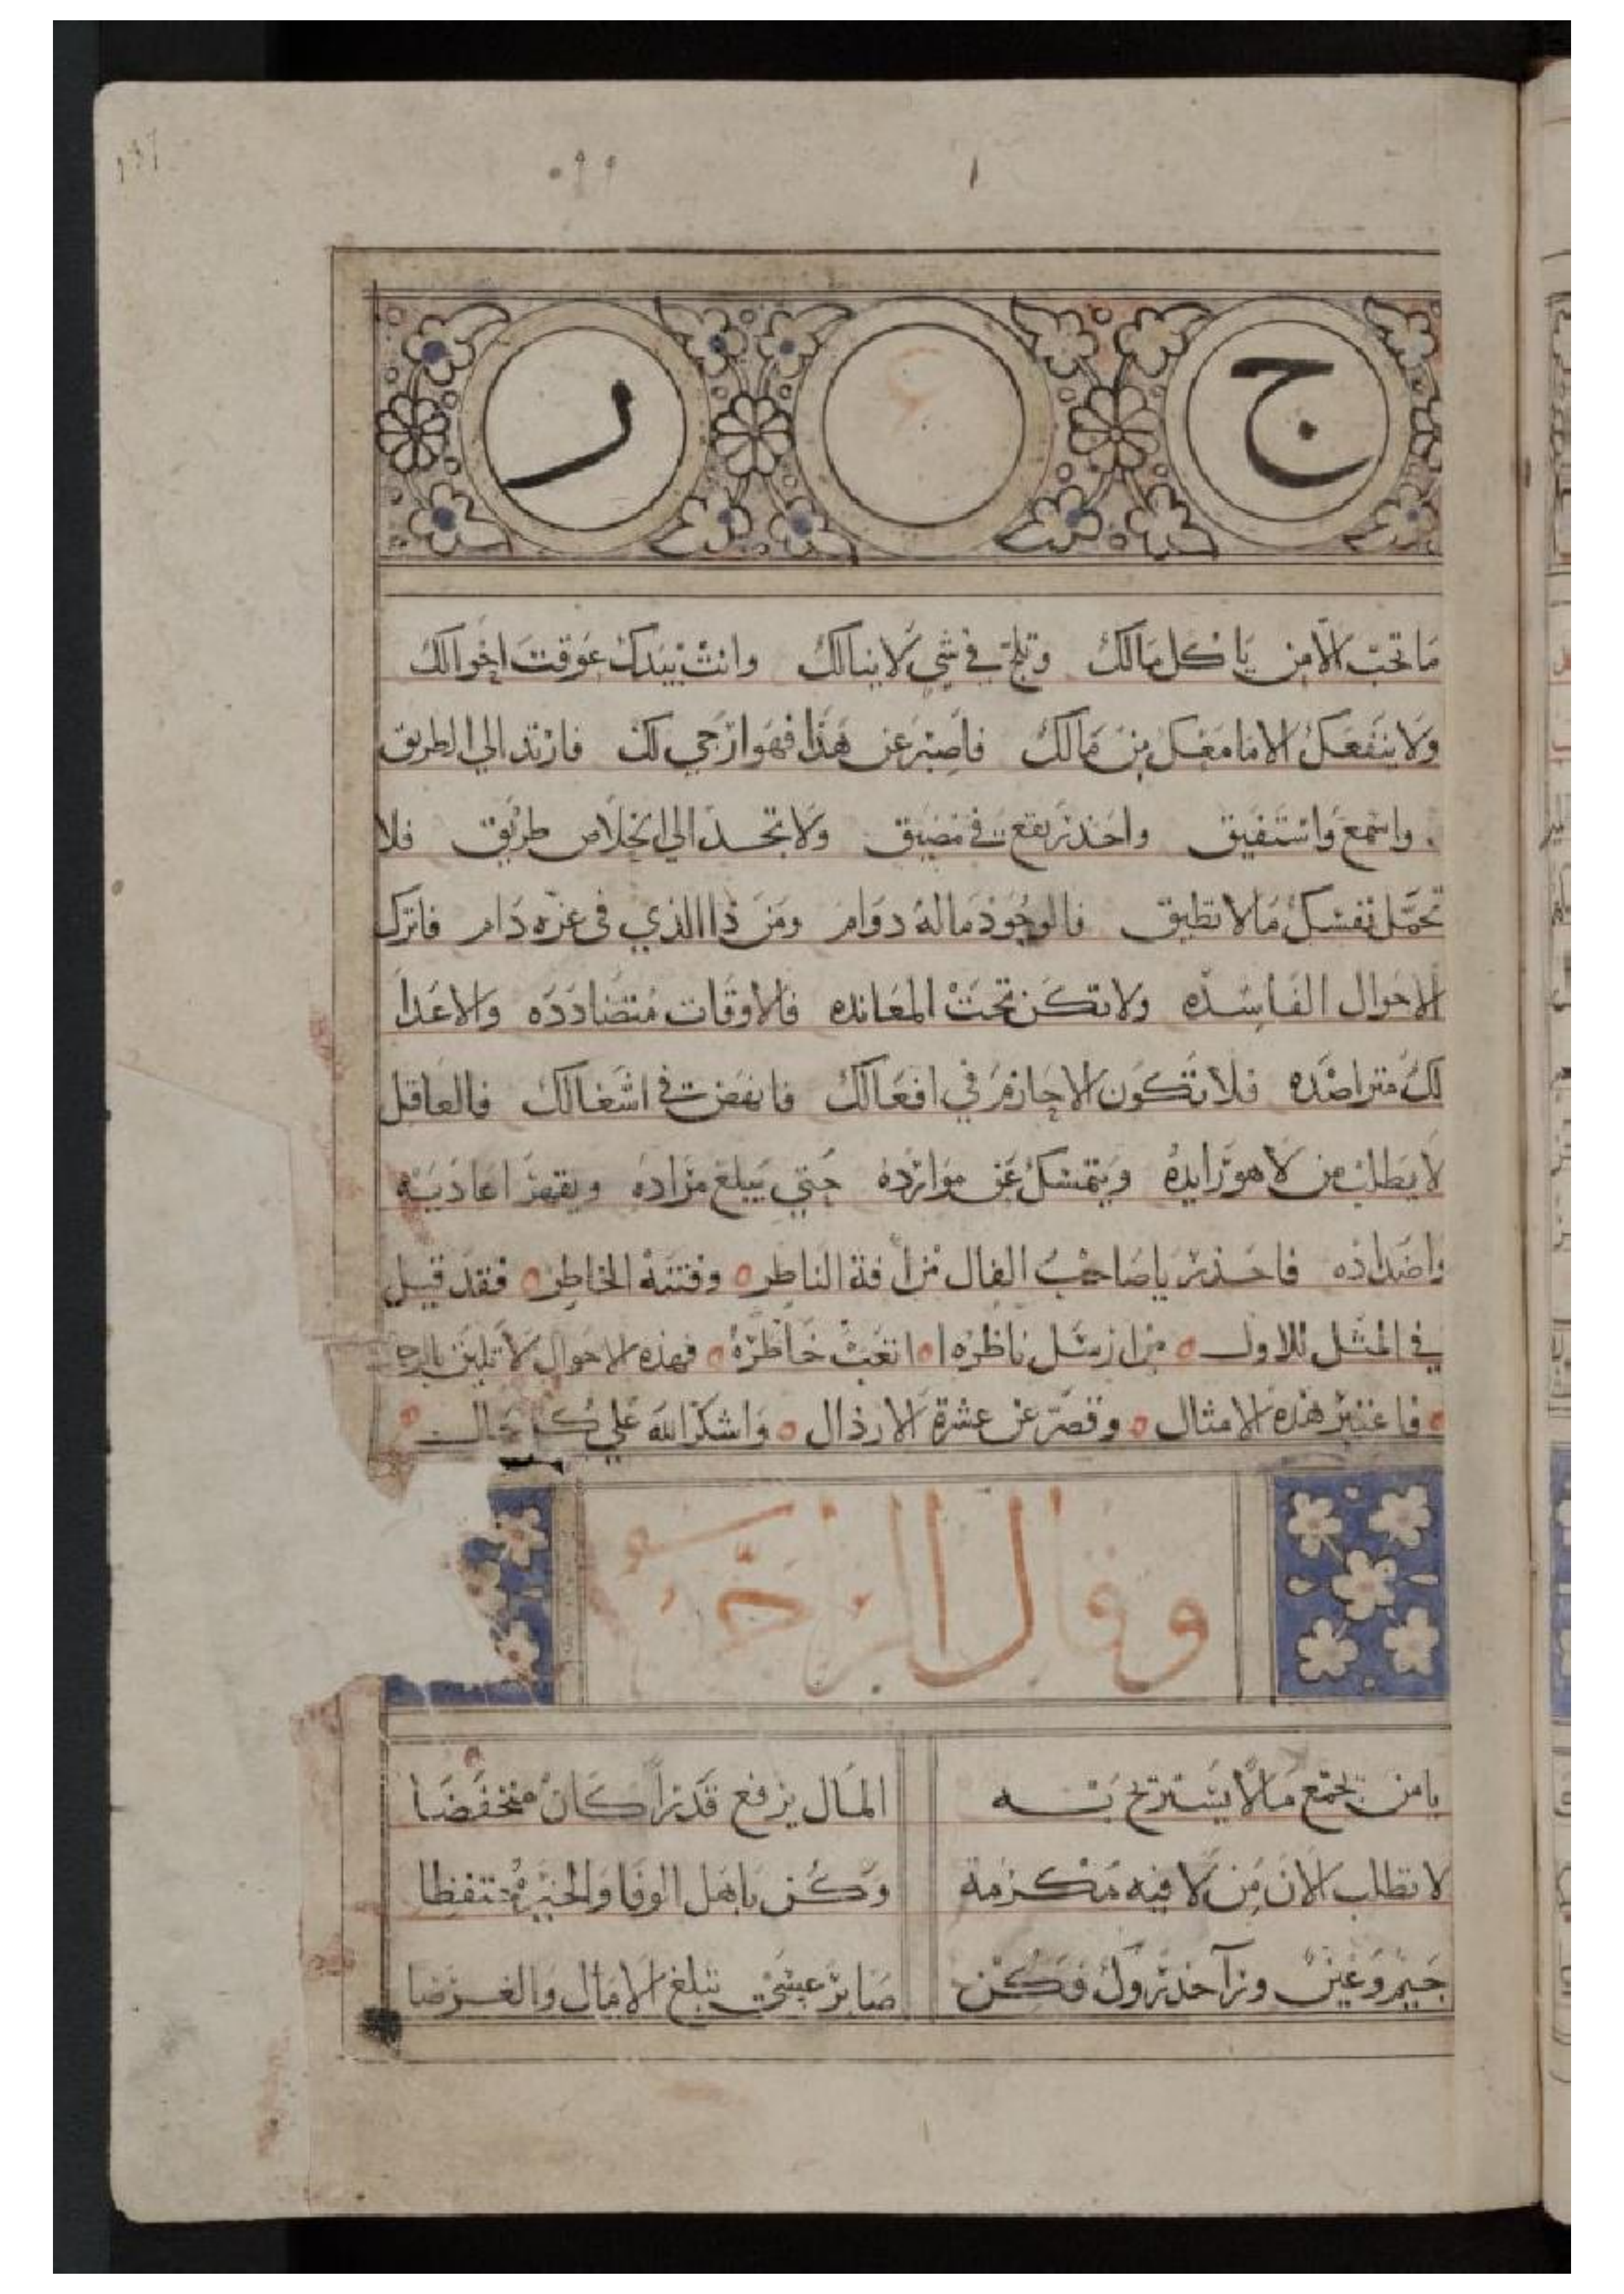 ج ع ر
ما تحب الا من ياكل مالك وتلج في شي لا ينالك وانت بيدك عوقت احوالك
ولا ينفعك الا ما معك من مالك فاصبر عن هذا فهو ارجي لك فارتد الي الطريق
واسمع واستفيق واحذر تقع في مضيق ولا تجد الي الخلاص طريق فلا
تحمل نفسك ما لا تطيق فالوجود ما له دوام ومن ذا الذي في عزه دام فاترك
الاحوال الفاسده ولا تكن تحت المعانده فالاوقات متضادده والاعدا
لك متراصده فلا تكون الا حازم في افعالك فانهض في اشغالك فالعاقل
لا يطلب من لا هو رايده ويتمسك عن موارده حتي يبلغ مراده ويقهر اعاديه
واضداده فاحذر يا صاحب الفال من افة الناظر وفتنة الخاطر فقد قيل
في المثل للاول من ارسل ناظره اتعب خاطره فهذه الاحوال لا تليق
فاعتبر هذه الامثال وقصر عن عشرة الارذال واشكر الله علي كل حال
وقال
يا من تجمع مالا يستريح به المال يرفع قدرا كان منخفضا
لا تطلب الان من لا فيه مكرمة وكن باهل الوفا والخير
جيم وعين ورا حذروك فكن صابر عسي تبلغ الامال والغرضا